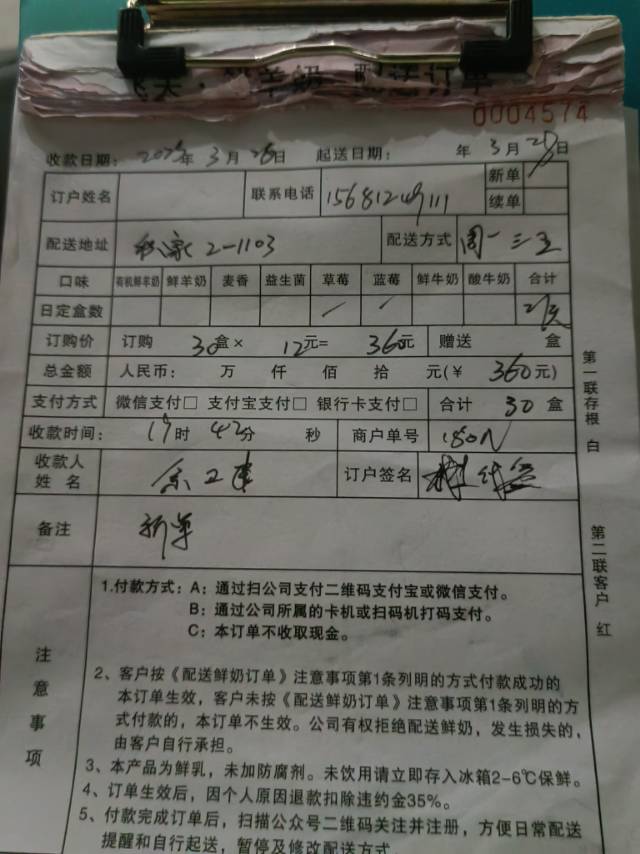 飞天·羊奶 配送订单
0004574
收款日期: 2025年 3月26日 起送日期: 年 3月28日
订户姓名 联系电话 新单
续单
配送地址 2-1103 配送方式 周一三五
口味 有机鲜羊奶 鲜羊奶 麦香 益生菌 草莓 蓝莓 鲜牛奶 酸牛奶 合计
日定盒数
订购价 订购 30盒× 12元= 360元 赠送 盒
总金额 人民币: 万 仟 佰 拾 元(¥ 360元)
支付方式 微信支付□ 支付宝支付□ 银行卡支付□ 合计 30盒
收款时间: 19时 42分 秒 商户单号 180N
收款人姓名 订户签名
备注 新单
注意事项
1.付款方式: A: 通过扫公司支付二维码支付宝或微信支付。
B: 通过公司所属的卡机或扫码机打码支付。
C: 本订单不收取现金。
2、客户按《配送鲜奶订单》注意事项第1条列明的方式付款成功的
本订单生效，客户未按《配送鲜奶订单》注意事项第1条列明的方
式付款的，本订单不生效。公司有权拒绝配送鲜奶，发生损失的，
由客户自行承担。
3、本产品为鲜乳，未加防腐剂。未饮用请立即存入冰箱2-6℃保鲜。
4、订单生效后，因个人原因退款扣除违约金35%。
5、付款完成订单后，扫描公众号二维码关注并注册，方便日常配送
提醒和自行起送，暂停及修改配送方式
第一联存根 白
第二联客户 红